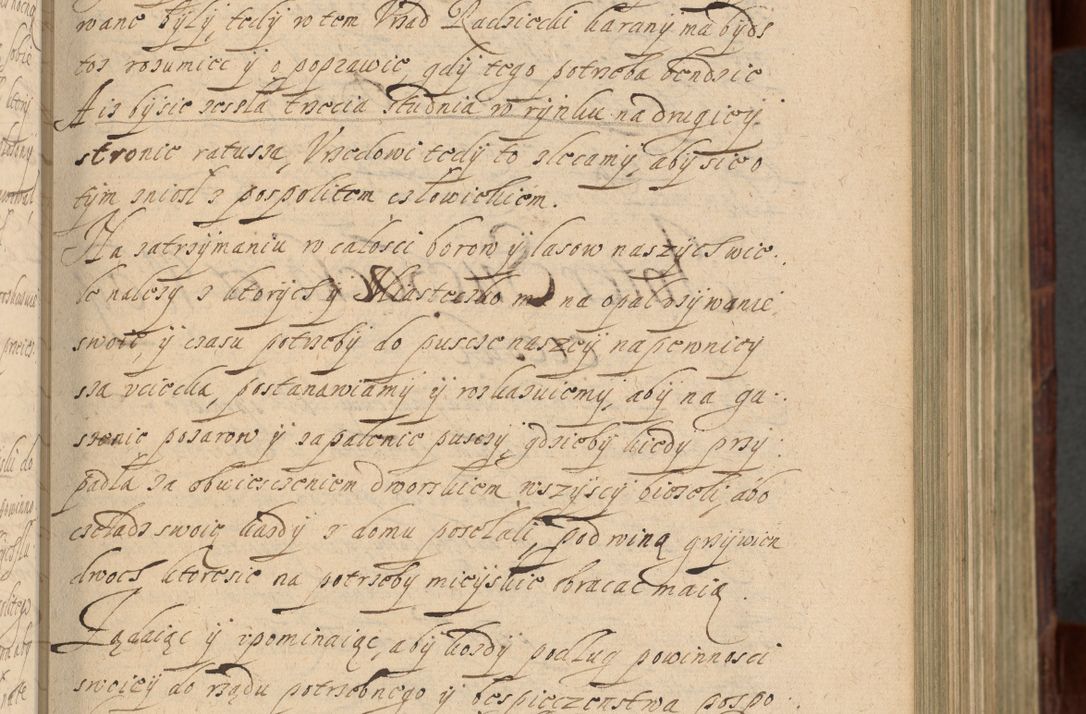 wane były, tedy w tem Vrząd Radziecki karany ma bydz
toz rozumiec y o poprawie gdy tego potrzeba bendzie
A iz by sie zeszła trzecia studnia w rynku na drugiey
stronie ratusza, Vrzedowi tedy to zlecamy, aby sie o
tym zniosl z pospolitem człowiekiem.
Na zatrzymaniu w całosci borow y lasow naszych wie
le nalezy z ktorych y Miasteczko ma na opatrzywanie
swoie, y czasu potrzeby do puscze naszey napewniey
sza vcieczka, postanawiamy y roskazuiemy, aby na ga
szenie pozarow y zapalenie puszczy, gdzieby kiedy przy
padła za obwiesczeniem dworskiem wszyscy biezeli, abo
czeładz swoię kazdy z domu posełali, pod winą grzywien
dwoch ktoresie na potrzeby mieyskie obracac maią.
Ządaiąc y vpominaiąc, aby kozdy podług powinnosci
swoiey do rządu potrzebnego y bespieczenstwa pospo